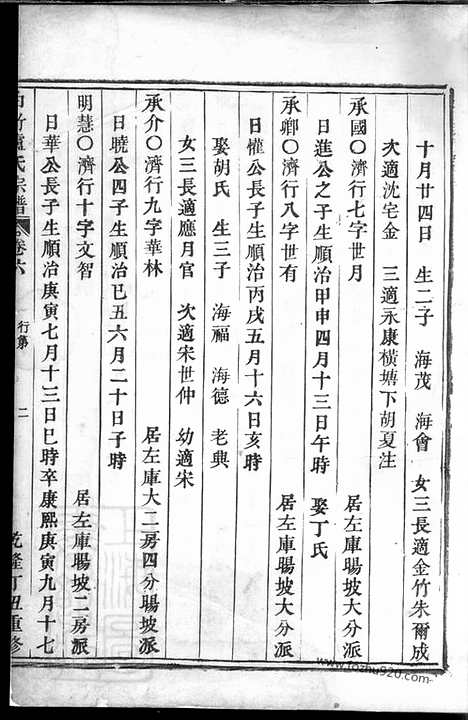 十月廿四日　生二子　海茂　海會　女三長適金竹朱爾成
次適沈宅金　三適永康橫塘下胡夏注
承國〇濟行七字世月　居左庫暘坡大分派
日進公之子生順治甲申四月十三日午時　娶丁氏
承鄉〇濟行八字世有　居左庫暘坡大分派
日懽公長子生順治丙戌五月十六日亥時
娶胡氏　生三子　海福　海德　老典
女三長適應月官　次適宋世仲　幼適宋
承介〇濟行九字華林　居左庫大二房四分暘坡派
日曉公四子生順治己五六月二十日子時
明慧〇濟行十字文智　居左庫暘坡二房派
日華公長子生順治庚寅七月十三日巳時卒康熙庚寅九月十七
竹盧氏宗譜　卷六　行第　二　乾隆丁丑重修
www.fozhu920.com